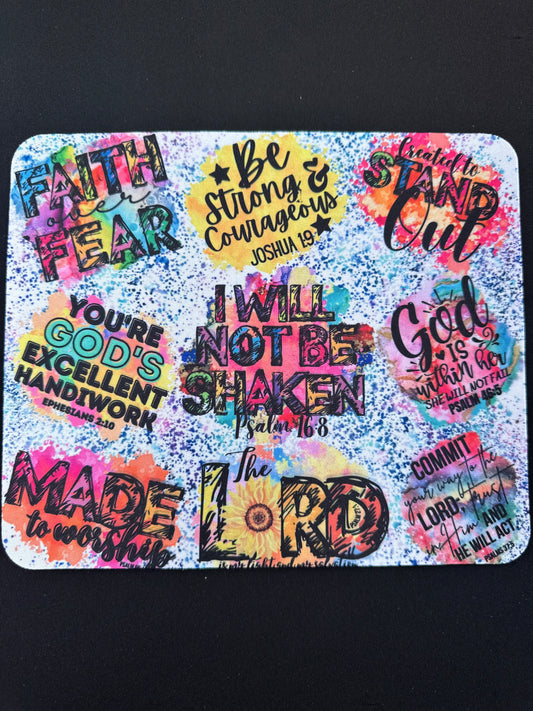 FAITH
over
FEAR
Be
Strong &
Courageous
JOSHUA 1:9
Created to
STAND
Out
YOU'RE
GOD'S
EXCELLENT
HANDIWORK
EPHESIANS 2:10
I WILL
NOT BE
SHAKEN
Psalm 16:8
God
IS
within her
SHE WILL NOT FAIL
PSALM 46:5
MADE
to worship
The
LORD
is my light and my salvation
COMMIT
your way to the
LORD, trust
in Him AND
HE WILL ACT.
PSALMS 37:5